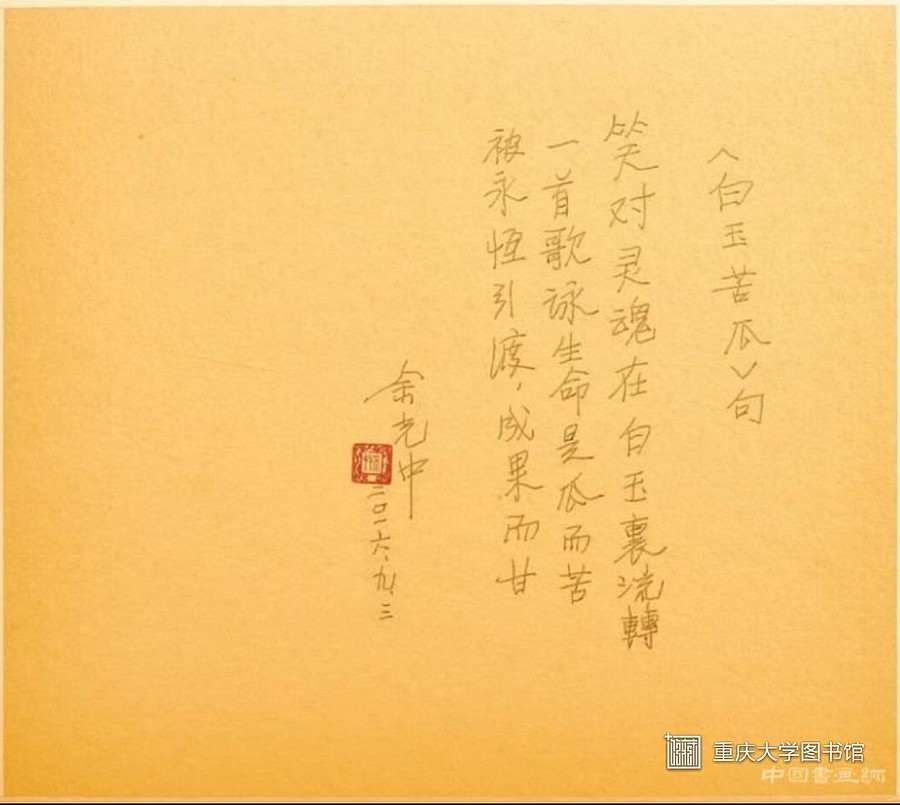 〈白玉苦瓜〉句
笑对灵魂在白玉裏流轉
一首歌咏生命是瓜而苦
被永恆引渡，成果而甘
余光中
二〇一六、九、三
重庆大学图书馆
中国书画网